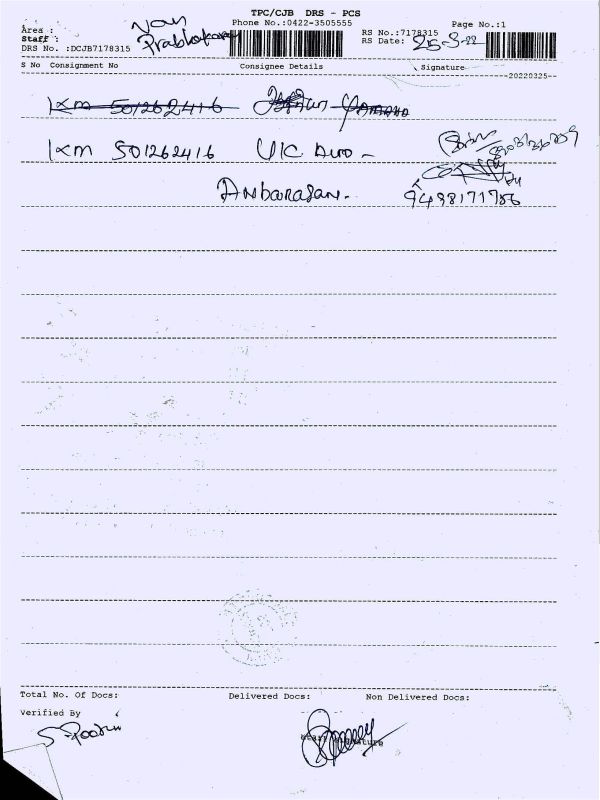 TPC/CJB DRS - PCS
Phone No.:0422-3505555
Page No.:1
Area : Van
Staff : Prabhakaran
DRS No. :DCJB7178315
RS No.:7178315
RS Date: 25-3-22
S No Consignment No Consignee Details Signature
20220325
IXM 501262416
IXM 501262416 UIC Auto -
Anbarasan. 9498171786
Total No. Of Docs: Delivered Docs: Non Delivered Docs:
Verified By
Staff Signature